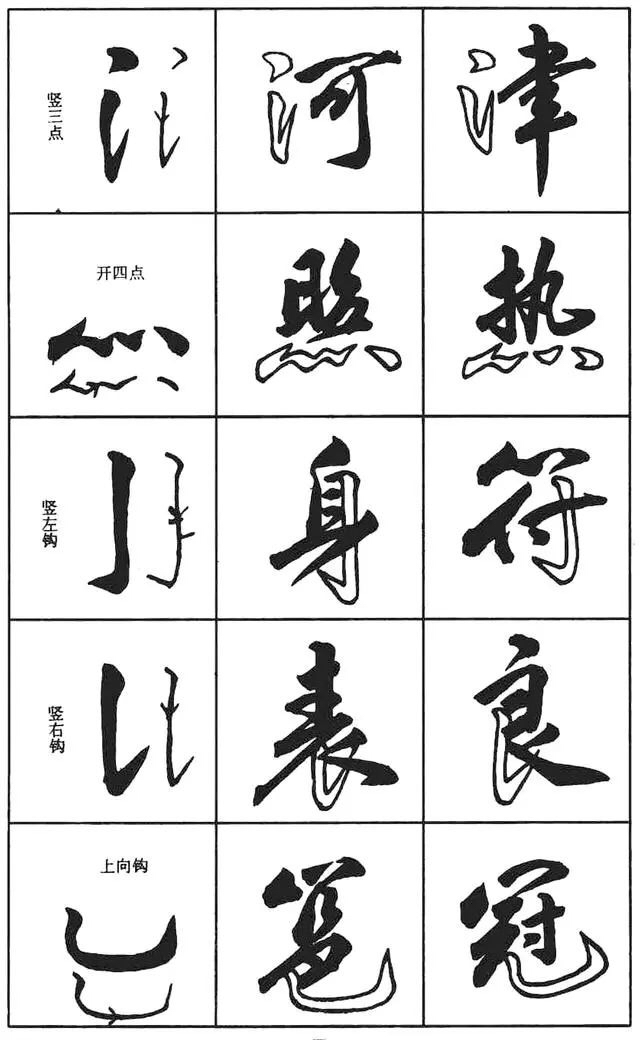 竖三点 河 津
开四点 照 热
竖左钩 身 符
竖右钩 表 良
上向钩 冠